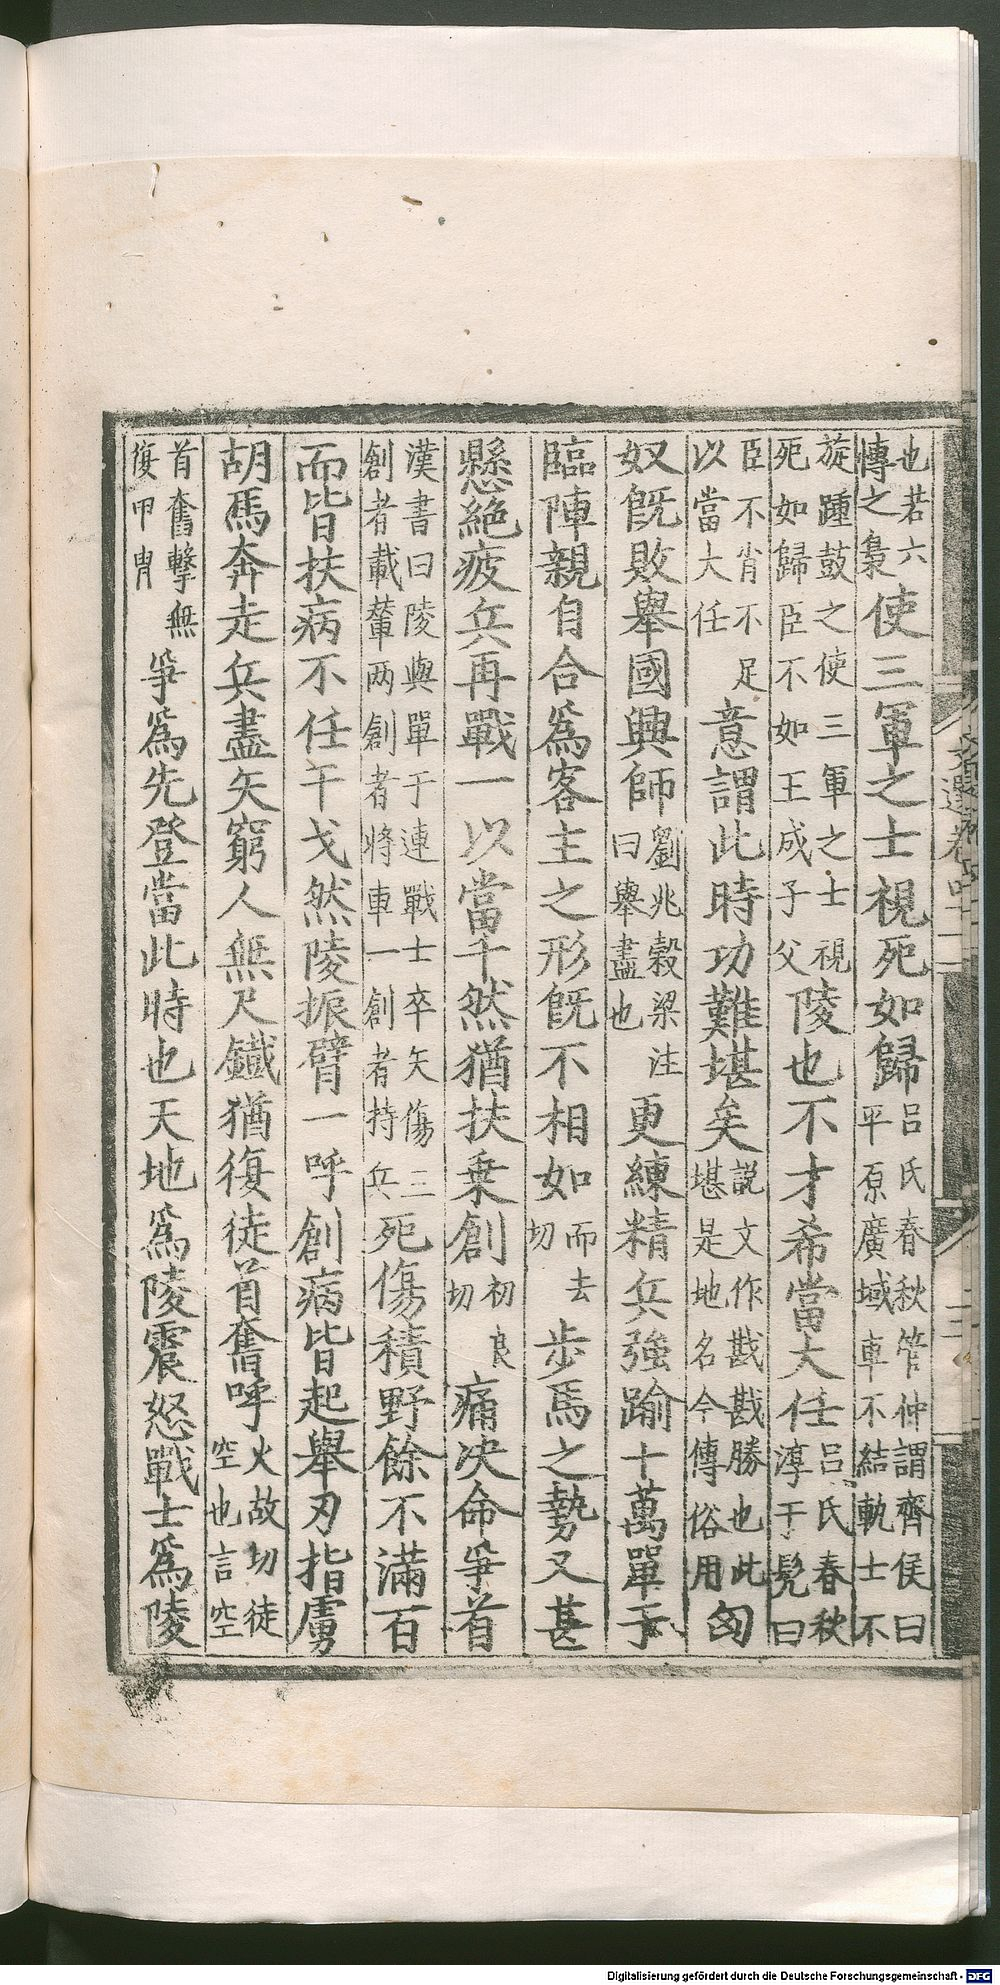 也若六傳之梟使三軍之士視死如歸吕氏春秋管仲謂齊侯曰平原廣域車不結軌士不
旋踵鼓之使三軍之士視死如歸臣不如王成子父陵也不才希當大任吕氏春秋淳于髠曰
臣不肖不足以當大任意謂此時功難堪矣説文作戡戡勝也此堪是地名今傳俗用匈
奴既敗舉國興師劉兆穀梁注曰舉盡也更練精兵強踰十萬單于
臨陣親自合爲客主之形既不相如而去切步馬之勢又甚
懸絶疲兵再戰一以當千然猶扶乗創初良切痛决命爭首
漢書曰陵與單于連戰士卒矢傷三創者載輦两創者將車一創者持兵死傷積野餘不滿百
而皆扶病不任干戈然陵振臂一呼創病皆起舉刃指虜
胡馬奔走兵盡矢窮人無尺鐵猶復徒首奮呼火故切徒空也言空
首奮擊無復甲胄爭爲先登當此時也天地爲陵震怒戰士爲陵
Digitalisierung gefördert durch die Deutsche Forschungsgemeinschaft - DFG